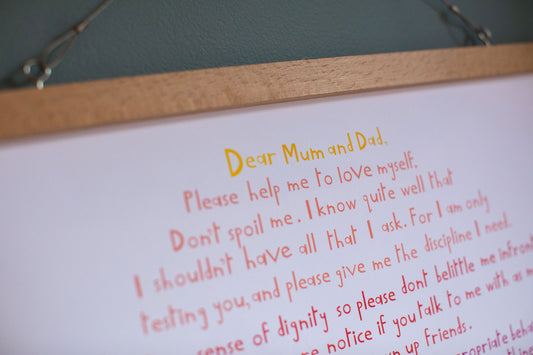 Dear Mum and Dad,
Please help me to love myself.
Don't spoil me. I know quite well that
I shouldn't have all that I ask. For I am only
testing you, and please give me the discipline I need.
sense of dignity so please dont belittle me infront
notice if you talk to me with as
up friends.
behav